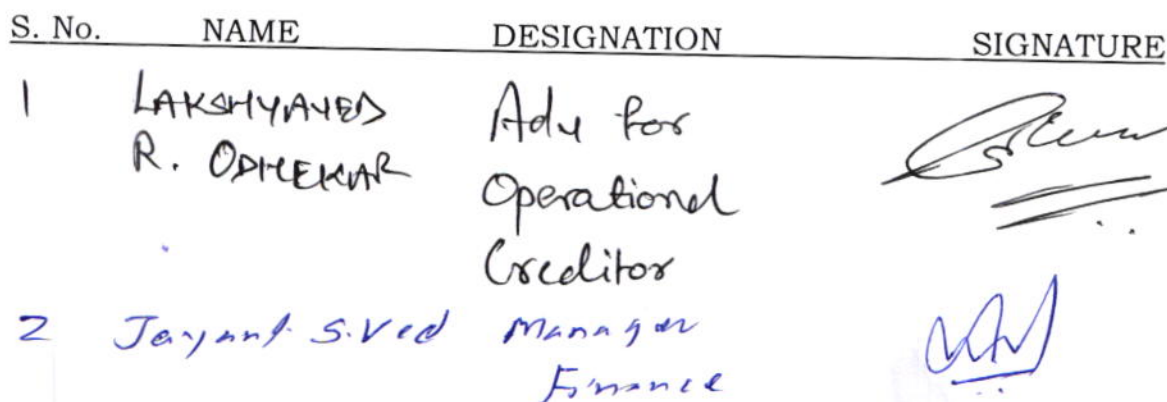 S. No. NAME DESIGNATION SIGNATURE
1 LAKSHYAVED Adv for
R. ODHEKAR Operational
Creditor
2 Jayant S. Ved Manager
Finance